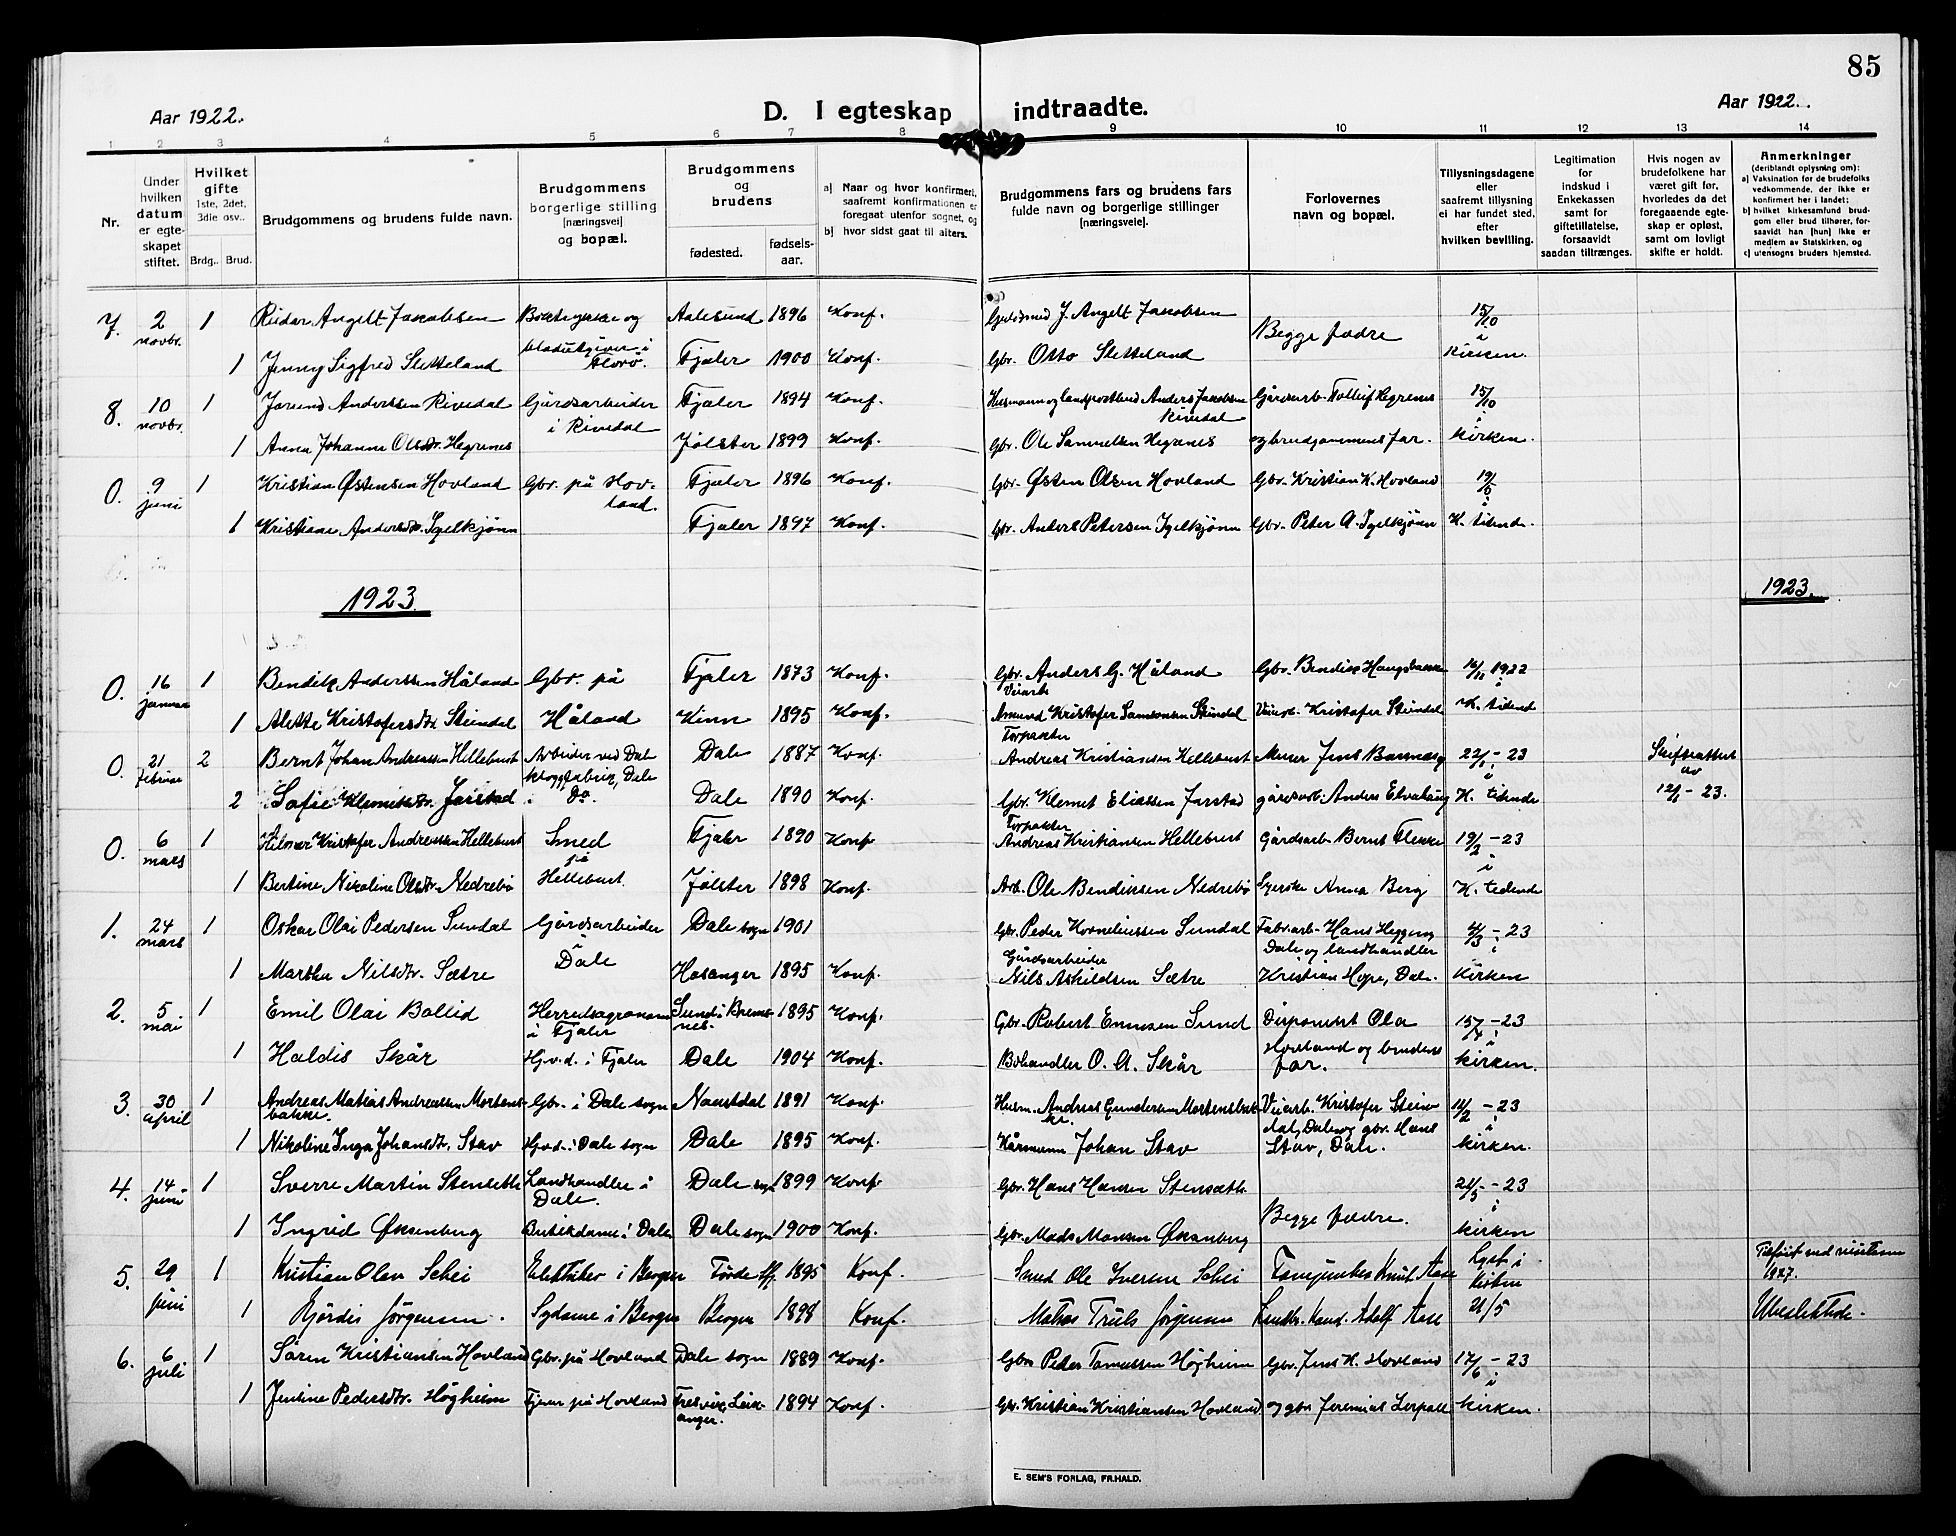 85
Aar 1922.
D. I egteskap indtraadte.
Aar 1922.
1 2 3 4 5 6 7 8 9 10 11 12 13 14
Nr.
Under hvilken datum er egteskapet stiftet.
Hvilket gifte 1ste, 2det, 3die osv..
Brdg.. Brud.
Brudgommens og brudens fulde navn.
Brudgommens borgerlige stilling [næringsvei] og bopæl.
Brudgommens og brudens
fødested. fødsels-aar.
a) Naar og hvor konfirmert, saafremt konfirmationen er foregaat utenfor sognet, og
b) hvor sidst gaat til alters.
Brudgommens fars og brudens fars fulde navn og borgerlige stillinger [næringsveie].
Forlovernes navn og bopæl.
Tillysningsdagene eller saafremt tillysning ei har fundet sted, efter hvilken bevilling.
Legitimation for indskud i Enkekassen samt for giftetillatelse, forsaavidt saadan tiltrænges.
Hvis nogen av brudefolkene har været gift før, hvorledes da det foregaaende egteskap er opløst, samt om lovligt skifte er holdt.
Anmerkninger (deriblandt oplysning om):
a) Vaksination for de brudefolks vedkommende, der ikke er konfirmert her i landet;
b) hvilket kirkesamfund brudgom eller brud tilhører, forsaavidt han [hun] ikke er medlem av Statskirken, og
c) utensogns bruders hjemsted.
7. 2 novbr. 1 Reidar Angelt Jacobsen Boktrykker og bladutgiver i Florø. Aalesund 1896 Konf. Guldsmed J. Angelt Jacobsen Begge fædre 15/10 i
1 Jenny Sigfred Sletteland Fjaler 1900 Konf. Gbr. Otto Sletteland kirken.
8. 10 novbr. 1 Jorund Anderssen Rivedal Gårdsarbeider i Rivedal Fjaler 1894 Konf. Husmann og landpostbud Anders Jakobsen Rivedal Gårdsarb. Tolleif Hegrenes 15/10 i
1 Anna Johanne Olsdtr. Hegrenes Jølster 1899 Konf. Gbr. Ole Samuelsen Hegrenes og brudgommens far. kirken.
0. 9 juni 1 Kristian Østensen Hovland Gbr. på Hovland. Fjaler 1896 Konf. Gbr. Østen Olsen Hovland Gbr. Kristian K. Hovland i
1 Kristiane Andersdtr. Igelkjønn Fjaler 1897 Konf. Gbr. Anders Petersen Igelkjønn Gbr. Peter A. Igelkjønn K. tidende.
1923
1923.
0. 16 januar 1 Bendik Anderssen Håland Gbr. på Håland Fjaler 1873 Konf. Gbr. Anders G. Håland Gbr. Bendik 16/11 1922 i
1 Alette Kristofersdtr. Steindal Kinn 1895 Konf. Veiarb. Kristofer Samsonsen Steindal Veiarb. Kristofer Steindal K. tidend
0. 21 februar 2 Bernt Johan Andreassen Hellebust Arbeider ved Dale skoggfabrik, Dale Dale 1887 Konf. Forpakter Andreas Kristiansen Hellebust Murer Jens 22/1 - 23 i Skifteattest av
2 Sofie Klemetsdtr. Jarstad i Do. Dale 1890 Konf. Gbr. Klemet Eliassen Jarstad gårdsarb. Anders K. tidende 12/1 - 23.
0. 6 mars 1 Hilmar Kristofer Andreassen Hellebust Smed på Hellebust Fjaler 1890 Konf Forpakter Andreas Kristiansen Hellebust Gårdsarb. Bernt Flekke 19/2 - 23 i
1 Bertine Nikoline Olsdtr. Nedrebø Jølster 1898 Konf. Arb. Ole Bendiksen Nedrebø Syerske Anna Berg K. tidende
1. 24 mars 1 Oskar Olai Pedersen Sundal Gårdsarbeider i Dale Dale sogn 1901 Gbr. Peder Korneliussen Sundal Fabr.arb. Hans Dale og landhandler 4/3 - 23 i
1 Martha Nilsdtr. Sætre Hosanger 1895 Konf. Gårdsarbeider Nils Askildsen Sætre Kristian Hope, Dale. kirken
2. 5 mai 1 Emil Olai Bollid Herredsagronom i Fjaler Sund i Bremsnes. 1895 Konf. Gbr. Robert Sund Disponent Ola Hovland og brudens far. 15/4 - 23 i
1 Haldis Skår Hjv.d. i Fjaler Dale 1904 Konf. Bohandler O. A. Skår kirken.
3. 30 april 1 Andreas Matias Andreassen Mortensbakke. Gbr. i Dale sogn Naustdal 1891 Konf. Husm. Andreas Gundersen Mortensbakke. Veiarb. Kristofer Steindal, Dale og gbr. Hans 11/2 - 23 i
1 Nikoline Inga Johansdtr. Stav Hjv.d. i Dale sogn Dale 1895 Konf. Kårmann Johan Stav Stav, Dale. kirken.
4. 14 juni 1 Sverre Martin Stensæth Landhandler i Dale. Dale sogn 1899 Konf. Gbr. Hans Hansen Stensæth. Begge fædre. 21/5 - 23 i
1 Ingrid Øksenberg Butikdame i Dale Dale sogn 1900 Konf. Gbr. Mads Monsen Øksenberg kirken
5. 29 juni 1 Kristian Olav Schei Elektriker i Bergen Førde Sfj. 1895 Konf. Smed Ole Iversen Schei Knut Aase Lyst i kirken Tilføiet ved visitasen 1927.
1 Hjørdis Jørgensen. Sydame i Bergen Bergen 1898 Konf. Matias Truls Jørgensen Adolf Aase 21/5 Ubeslektede.
6. 6 juli 1 Søren Kristiansen Hovland Gbr. på Hovland Dale sogn 1889 Konf. Gbr. Peder Tomassen Høgheim Gbr. Jens K. Hovland 17/6 - 23 i
1 Jentine Pedersdtr. Høgheim Tjener på Hovland Fresvik, Leikanger. 1894 Konf. Gbr. Kristian Kristiansen Hovland og gbr. Jeremias kirken.
E. SEM'S FORLAG, FR.HALD.